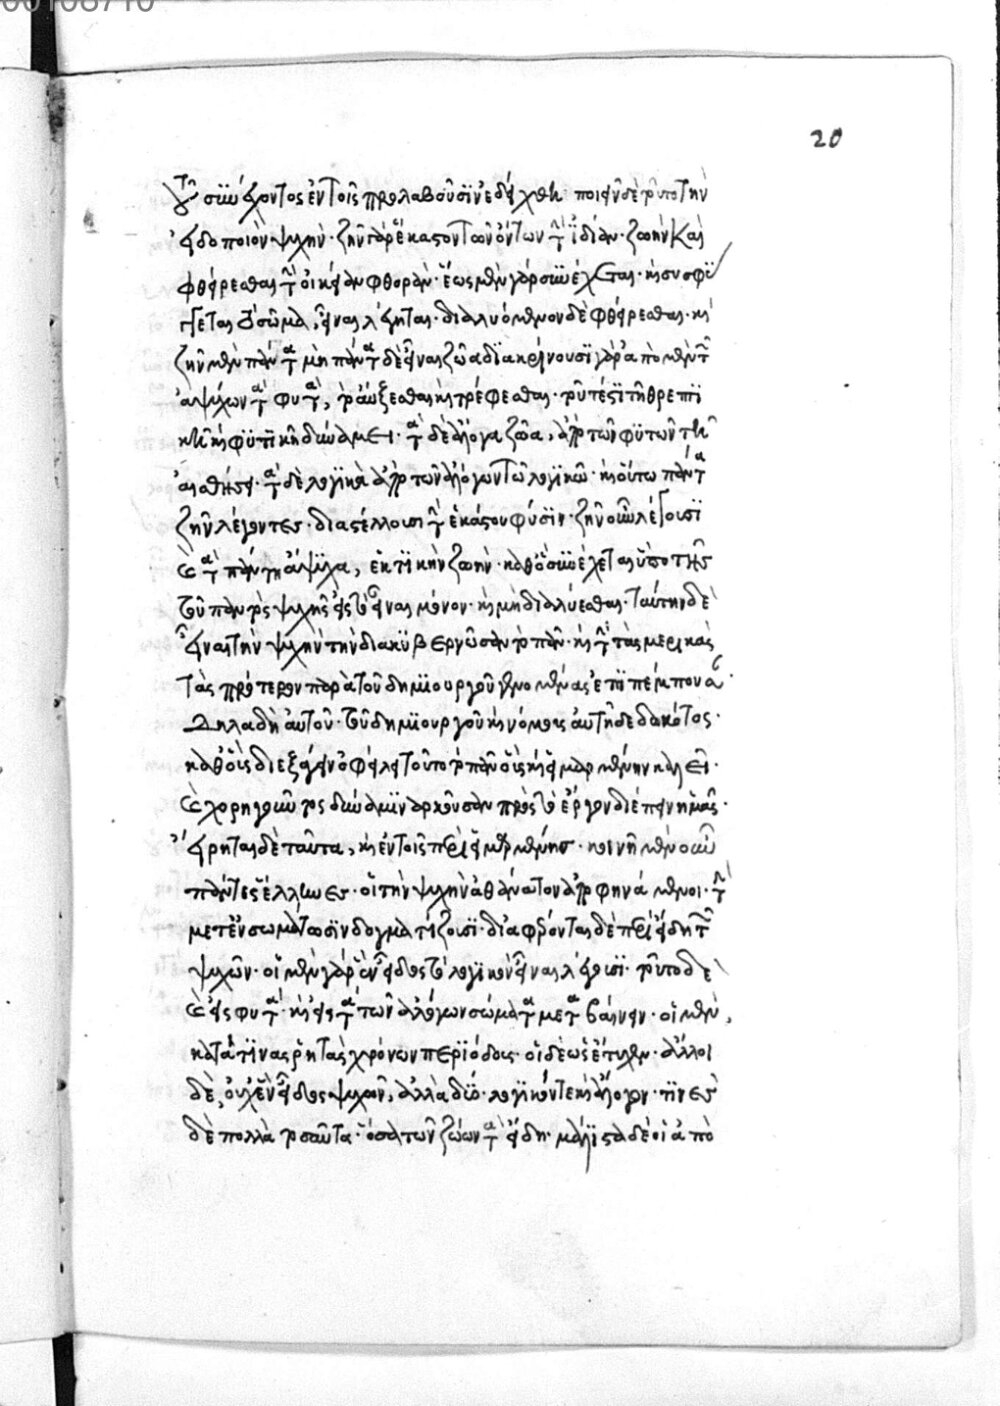 τοῦ συνέχοντος ἐν τοῖς προλαβοῦσιν ἐδείχθη· ποιεῖν δὲ τοῦτο τὴν
εἰδοποιὸν ψυχήν· ζῆν γὰρ ἕκαστον τῶν ὄντων τὴν ἰδίαν ζωὴν καὶ
φθείρεσθαι τὴν οἰκείαν φθοράν· ἕως μὲν γὰρ συνέχεται· καὶ συσφίγ
γεται τὸ σῶμα, εἶναι λέγεται· διαλυόμενον δὲ φθείρεσθαι· καὶ
ζῆν μὲν πάντα μὴ πάντα δὲ εἶναι ζῶα διακρίνουσι γὰρ ἀπὸ μὲν τῶν
ἀψύχων τὰ φυτά, τῷ αὔξεσθαι καὶ τρέφεσθαι· τουτέστι τῇ θρεπτι
κῇ καὶ φυτικῇ δυνάμει· τὰ δὲ ἄλογα ζῶα, ἀπὸ τῶν φυτῶν τῇ
αἰσθήσει· τὰ δὲ λογικὰ ἀπὸ τῶν ἀλόγων τῷ λογικῷ· καὶ οὕτω πάντα
ζῆν λέγοντες· διαστέλλουσι τὴν ἑκάστου φύσιν· ζῆν οὖν λέγουσι
καὶ τὰ πάντη ἄψυχα, ἑκτικὴν ζωήν· καθὸ συνέχεται ὑπὸ τῆς
τοῦ παντὸς ψυχῆς εἰς τὸ εἶναι μόνον· καὶ μὴ διαλύεσθαι· ταύτην δὲ
εἶναι τὴν ψυχὴν τὴν διακυβερνῶσαν τὸ πᾶν· καὶ τὴν τὰς μερικὰς
τὰς πρότερον παρὰ τοῦ δημιουργοῦ γενομένας ἐπιπέμπουσαν·
δηλαδὴ αὐτοῦ· τοῦ δημιουργοῦ καὶ νόμους αὐτῇ δεδωκότος·
καθ' οὓς διεξάγειν ὀφείλει τοῦτο τὸ πᾶν οὓς καὶ εἱμαρμένην καλεῖ·
καὶ χορηγοῦντος δύναμιν ἀρκοῦσαν πρὸς τὸ ἔργον διέπειν ἡμᾶς·
εἴρηται δὲ ταῦτα, καὶ ἐν τοῖς περὶ εἱμαρμένης· κοινῇ μὲν οὖν
πάντες ἕλληνες· οἱ τὴν ψυχὴν ἀθάνατον ἀποφηνάμενοι· τὴν
μετενσωμάτωσιν δογματίζουσι· διαφέρονται δὲ περὶ εἴδη τῶν
ψυχῶν· οἱ μὲν γὰρ ἓν εἶδος τὸ λογικὸν εἶναι λέγουσι· τοῦτο δὲ
καὶ εἰς φυτά· καὶ εἰς τὰ τῶν ἀλόγων σώματα μεταβαίνειν· οἱ μὲν,
κατά τινας ῥητὰς χρόνων περιόδους· οἱ δὲ ὡς ἔτυχεν· ἄλλοι
δὲ, οὐχ ἓν εἶδος ψυχῶν, ἀλλὰ δύο· λογικόν τε καὶ ἄλογον· τινὲς
δὲ πολλὰ τοσαῦτα· ὅσα τῶν ζώων τὰ εἴδη· μάλιστα δὲ οἱ ἀπὸ